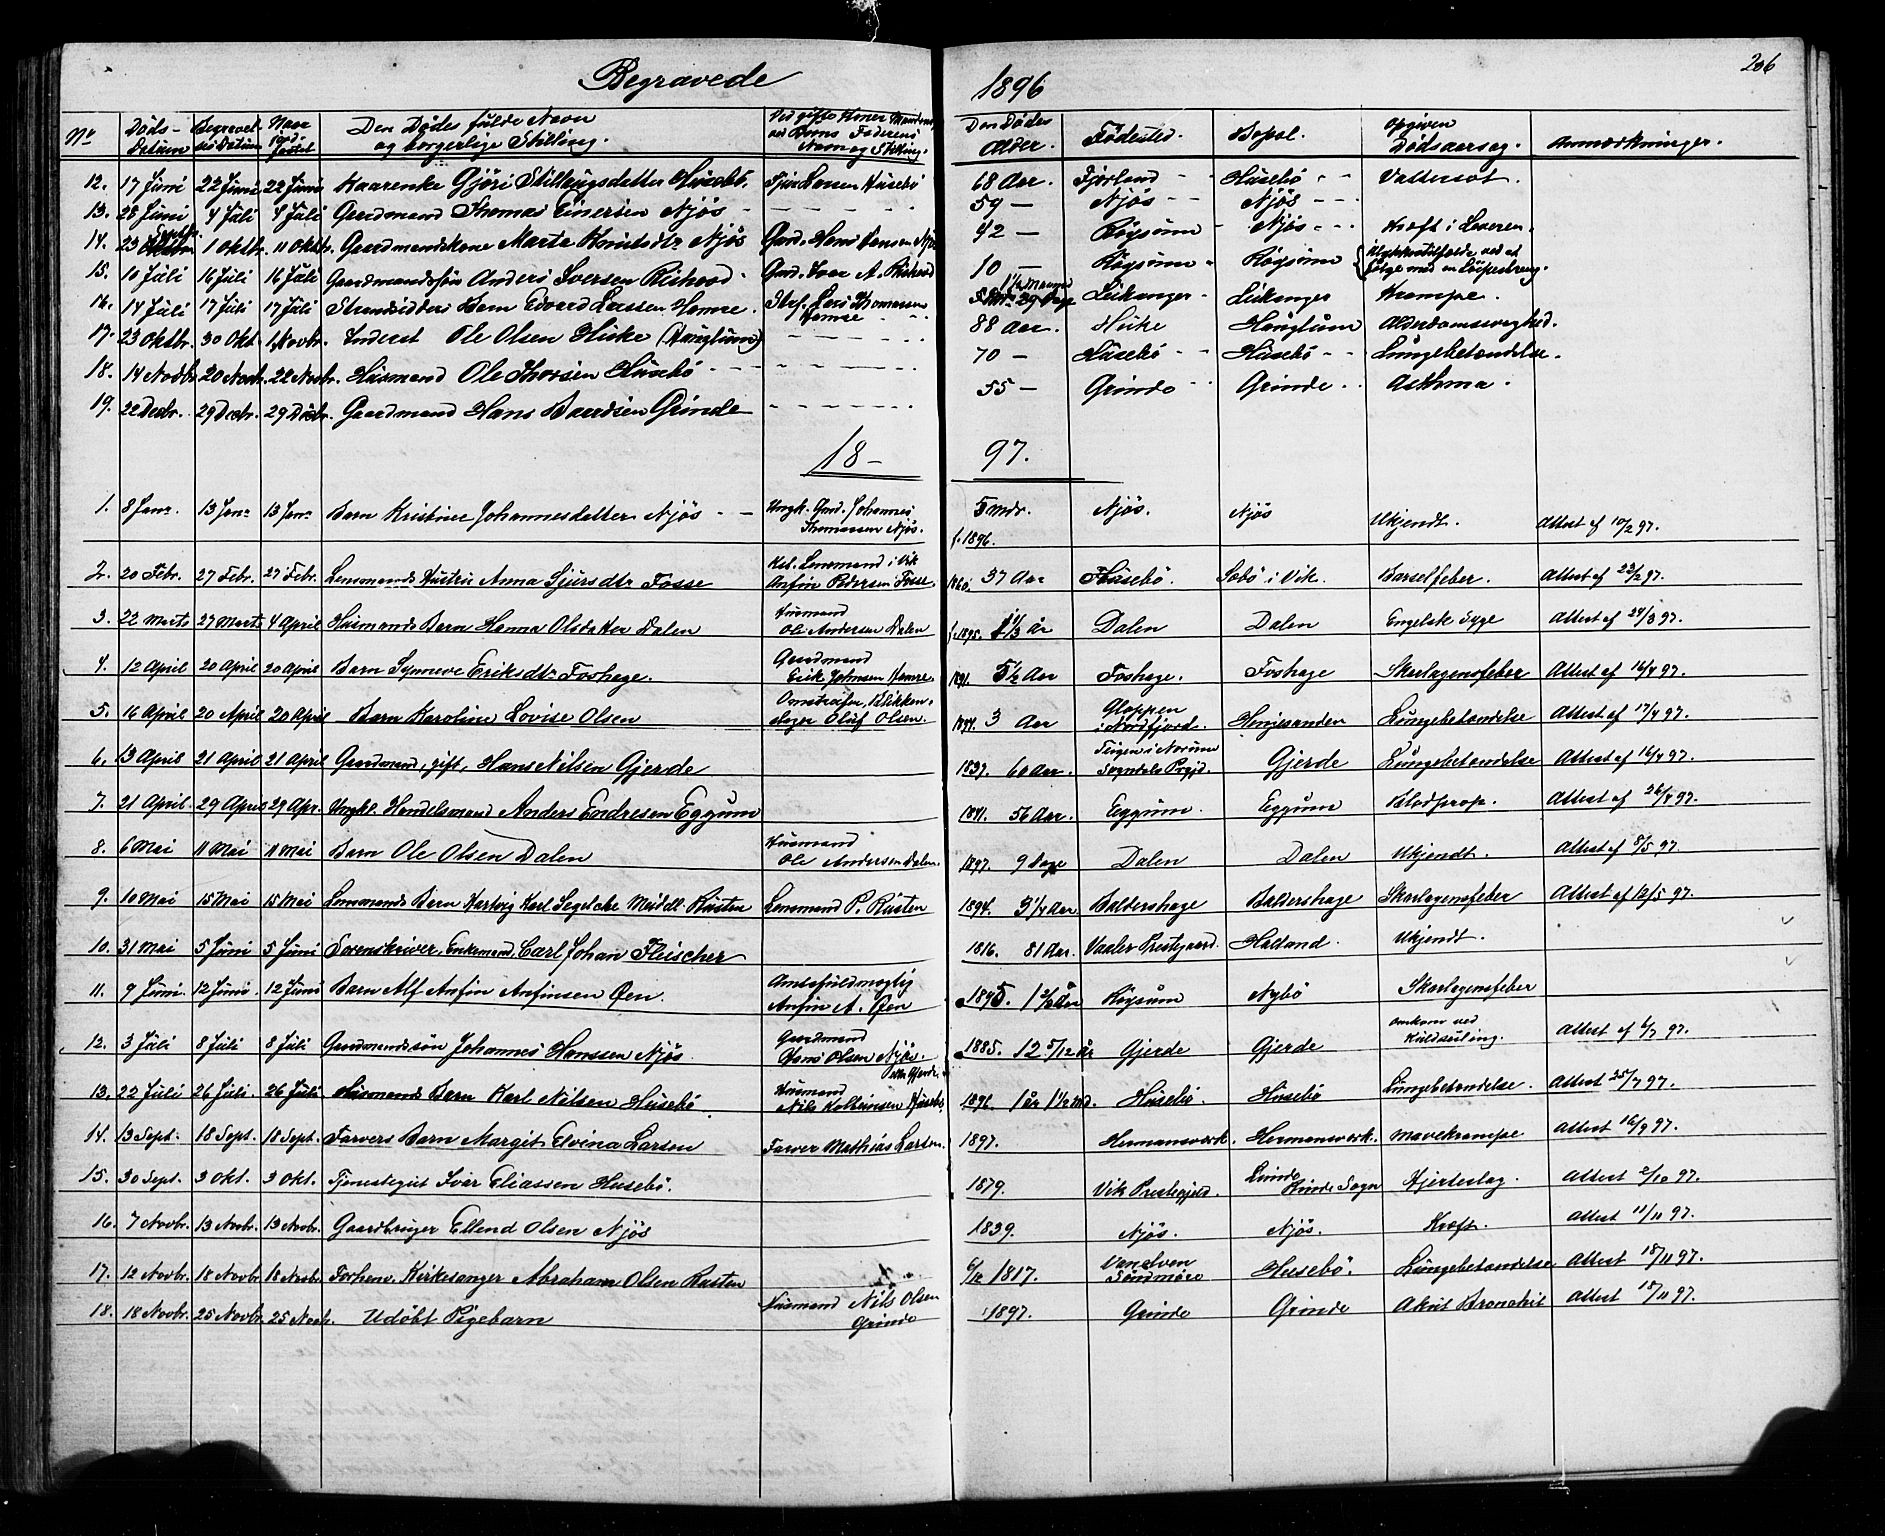 Begravede 1896 206
No Døds-Datum Begravel-ses Datum Naar Jord-fæstet Den Dødes fulde Navn og borgerlige Stilling. Ved gifte Koner Mandens, ved Børns Faderens Navn og Stilling. Den Dødes Alder. Fødested. Bopæl. Opgiven Dødsaarsag. Anmærkninger.
12. 17 Juni 22 Juni 22 Juni Kaarenke Gjøri Husebø. Husebø 68 Aar. Fjærland Husebø Vattersot.
13. 28 Juni 4 Juli 4 Juli Gaardmand Thomas Einersen Njøs 59 — Njøs Njøs
14. 23 Septbr. 1 Oktbr. 11 Oktbr. Gaardmandskone Marte Knutsdtr Njøs Gard. Hans Hansen Njøs 42 — Røysum Njøs Kræft i Leveren.
15. 10 Juli 16 Juli 16 Juli Gaardmandssøn Anders Iversen Gard. Iver A. 10 — Røysum Røysum Ulykkestilfælde ved at følge med en Løipestreng.
16. 14 Juli 17 Juli 17 Juli Strandsidders Barn Edvard Larssen Hamre. Strs. Lars Thomassen Hamre Leikanger Leikanger Krampe.
17. 23 Oktbr. 30 Okt. 1 Novbr. Inderst Ole Olsen Huke (Hauglum) 88 Aar. Huke Hauglum Alderdomssvaghed.
18. 14 Novbr. 20 Novbr. 22 Novbr. Husmand Ole Thorsen Husebø 70 — Husebø Husebø Lungebetændelse.
19. 22 Decbr. 29 Decbr. 29 Decbr. Gaardmand Hans Baardsen Grinde 55 — Grinde Grinde Asthma.
18— 97.
1. 8 Janr. 13 Janr 13 Janr Barn Kristine Johannesdatter Njøs Ungk. Gard. Johannes Thomassen Njøs. f. 1896. 5 Mdr. Njøs. Njøs Ukjendt. Attest af 10/2 97.
2. 20 Febr. 27 Febr. 27 Febr. Lensmands Hustru Anna Sjursdtr Fosse Kst. Lensmand i Vik Anfin Pedersen Fosse. 1860. 37 Aar Husebø. Sæbø i Vik. Barselfeber. Attest af 23/2 97.
3. 22 Marts 27 Marts 4 April Husmands Barn Hanna Olsdatter Dalen Husmand Ole Andersen Dalen f. 1895. 1 1/3 år Dalen Dalen Engelsk Syge Attest af 24/3 97.
4. 12 April 20 April 20 April Barn Synneve Eriksdtr Foshage. Gaardmand Erik Johnsen Hamre. 1891. 5 1/2 Aar Foshage. Foshage Skarlagensfeber Attest af 16/4 97.
5. 16 April 20 April 20 April Barn Karoline Lovise Olsen Omstreifer, Blikken-slager Oluf Olsen. 1894. 3 Aar Gloppen i Nordfjord. Henjesanden Lungebetændelse Attest af 17/4 97.
6. 13 April 21 April 21 April Gaardmand, gift, Hans Nilsen Gjerde 1837. 60 Aar. Teigen i Norum Sogndals Prgjd. Gjerde Lungebetændelse Attest af 16/4 97.
7. 21 April. 29 April 29 Apr. Ungkl. Handelsmand Anders Endresen Eggum 1841. 56 Aar. Eggum. Eggum Blodprop. Attest af 26/4 97.
8. 6 Mai 11 Mai 11 Mai Barn Ole Olsen Dalen Husmand Ole Andersen Dalen. 1897. 9 Dage Dalen Dalen Ukjendt. Attest af 8/5 97.
9. 10 Mai 15 Mai 15 Mai Lensmands Barn Hartvig Karl Segelcke Meidell Rusten Lensmand P. Rusten 1894. 3 1/4 Aar Baldershage Baldershage Skarlagensfeber Attest af 12/5 97.
10. 31 Mai 5 Juni 5 Juni Sorenskriver, Enkemand, Carl Johan Fleischer 1816. 81 Aar. Vaaler Prestegaard. Hadland. Ukjendt.
11. 9 Juni. 12 Juni. 12 Juni Barn Alf Anfin Anfinsen Øen. Amtsfuldmægtig Anfin A. Øen 1895. Røysum Nybø Skarlagensfeber
12. 3 Juli 8 Juli 8 Juli Gaardmandssøn Johannes Hanssen Njøs Gaardmand Hans Olsen Njøs. eller Gjerde. 1885. 12 5/12 år Gjerde Gjerde omkom ved Attest af 6/7 97.
13. 22 Juli 26 Juli. 26 Juli Husmands Barn Karl Nilsen Husebø. Husmand Nils Kolbeinsen Husebø. 1896. 1 år 1 1/2 Md. Husebø. Husebø Lungebetændelse. Attest 25/7 97.
14. 13 Sept. 18 Sept. 18 Sept. Farvers Barn Margit Elvina Larsen Farver Mathias Larsen. 1897. Hermansværk. Hermansværk. Mavekrampe Attest 16/9 97.
15. 30 Sept. 3 Okt. 3 Okt. Tjenestegut Iver Eliassen Husebø. 1879. Vik Prestegjeld. Rinde Sogn Hjerteslag. Attest 2/10 97.
16. 7 Novbr. 13 Novbr. 13 Novbr. Gaardbruger Ellend Olsen Njøs 1839. Njøs. Njøs. Kræft. Attest 11/11 97.
17. 12 Novbr. 18 Novbr. 18 Novbr. Forhenv. Kirkesanger Abraham Olsen Rusten 6/12 1817. Vanelven Søndmøre Husebø. Lungebetændelse Attest 18/11 97.
18. 18 Novbr. 25 Novbr. 25 Novbr. Udøbt Pigebarn Husmand Nils Olsen Grinde 1897. Grinde Grinde Akut Bronchit Attest 18/11 97.